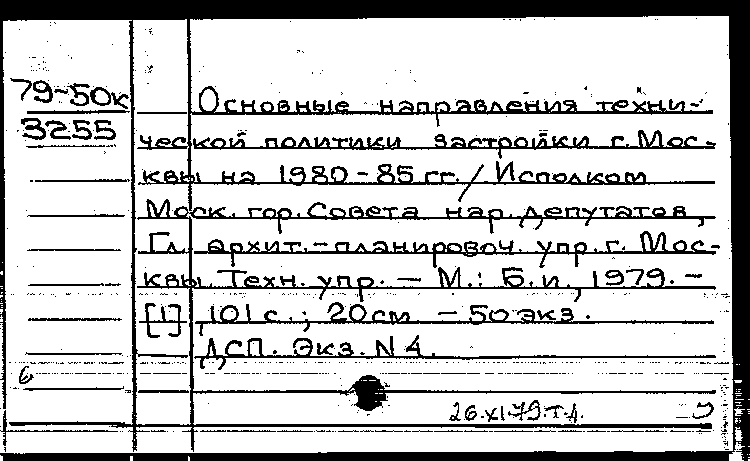 79-50к
3255
Основные направления техни-
ческой политики застройки г. Мос-
квы на 1980-85 гг. / Исполком
Моск. гор. Совета нар. депутатов,
Гл. архит.-планировоч. упр. г. Мос-
квы. Техн. упр. — М.: Б. и., 1979. —
[1], 101 с.; 20 см — 50 экз.
ДСП. Экз. N 4.
6
26.XI.79.Т.Д.